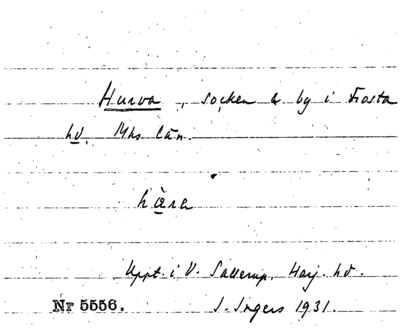 Hurva, socken & by i Frosta
hd. Mhs län.
Uppt. i V. Sallerup, Harj. hd.
Nr 5556. J. Ingers 1931.